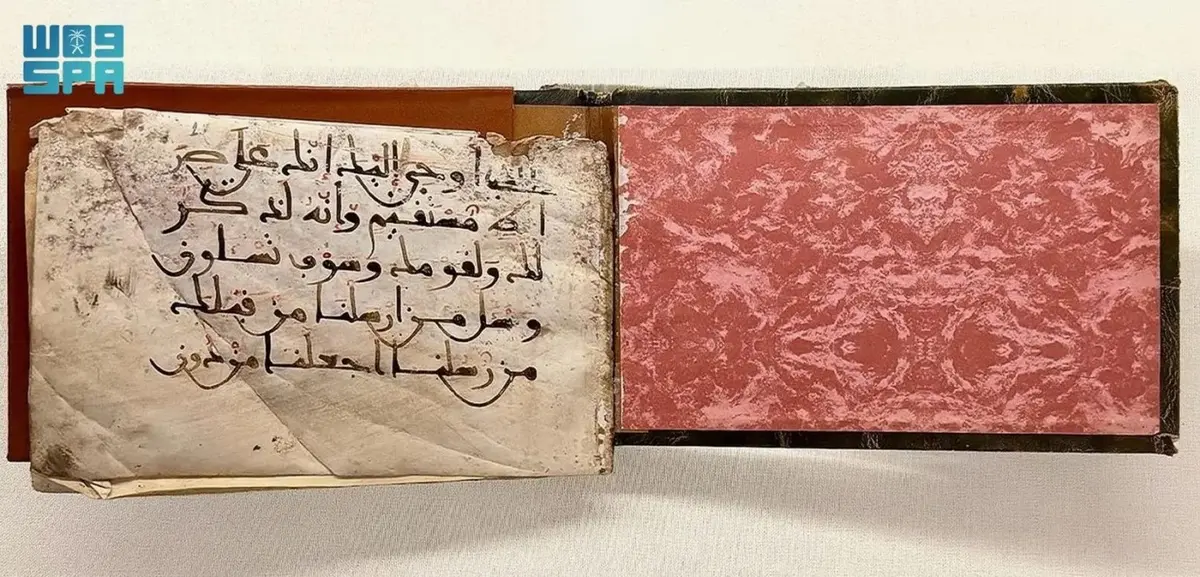 واس
SPA
الذي أوحي إليك إنك على صر
اط مستقيم وإنه لذكر
لك ولقومك وسوف تسلون
وسل من ارسلنا من قبلك
من رسلنا اجعلنا من دون